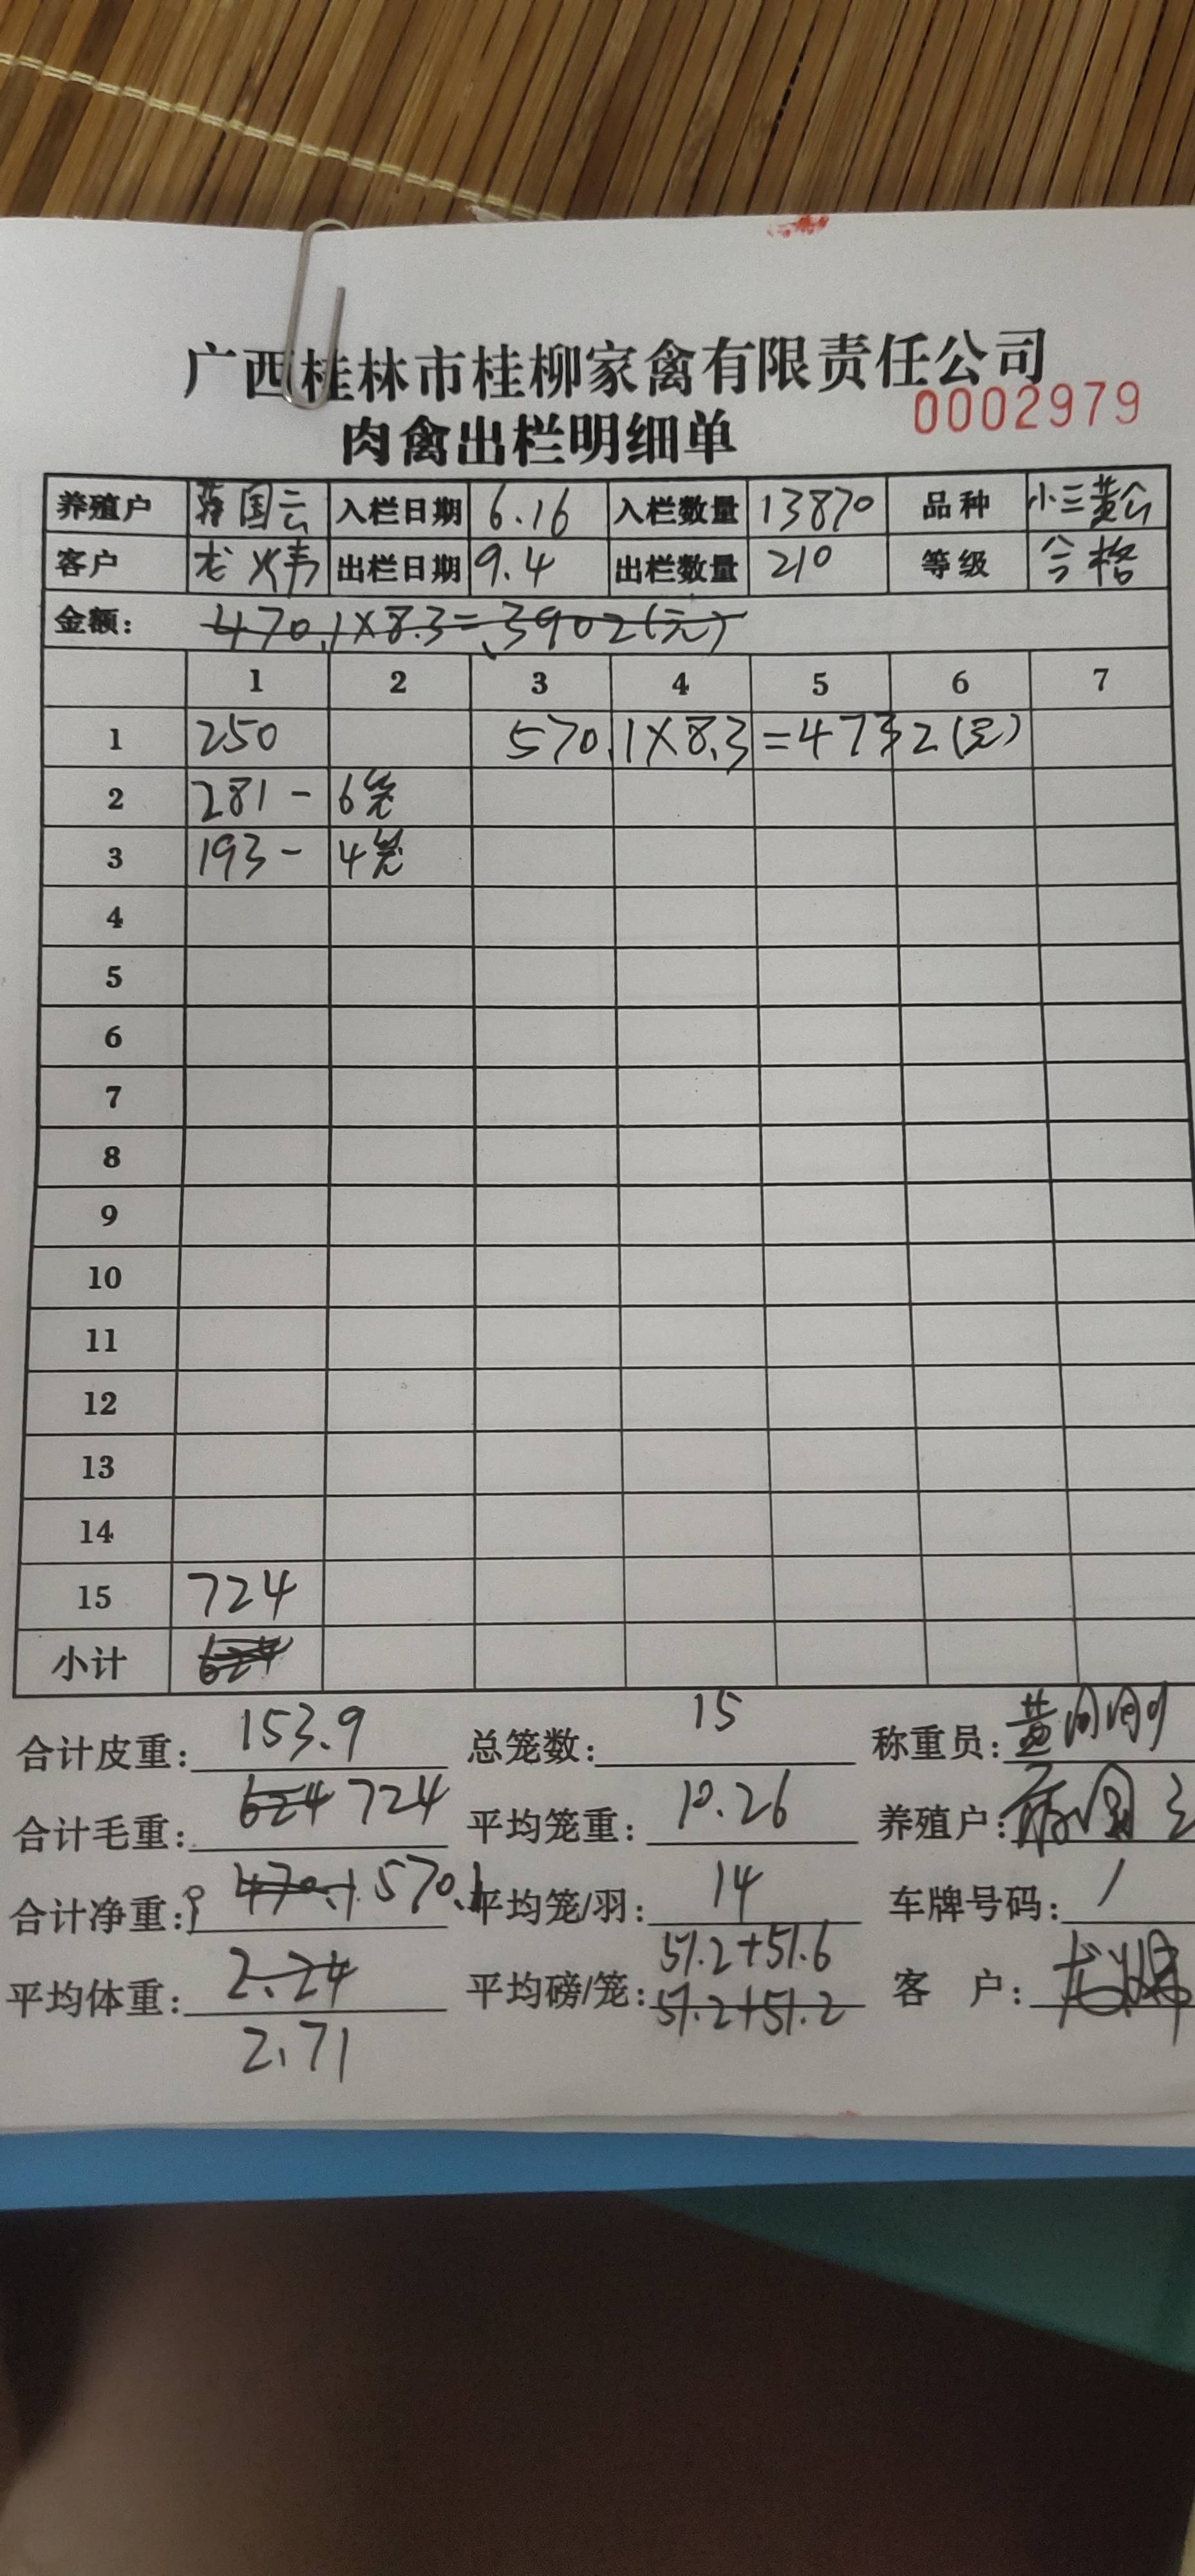 广西桂林市桂柳家禽有限责任公司
0002979
肉禽出栏明细单
养殖户 国云 入栏日期 6.16 入栏数量 13870 品种 小三黄公
客户 龙 出栏日期 9.4 出栏数量 210 等级 合格
金额: 470.1×8.3=3902(元)
1 2 3 4 5 6 7
1 250 570.1×8.3=4732(元)
2 281- 6笼
3 193- 4笼
4
5
6
7
8
9
10
11
12
13
14
15 724
小计 624
合计皮重: 153.9 总笼数: 15 称重员: 黄
合计毛重: 624 724 平均笼重: 10.26 养殖户:
合计净重: 470.1 570.1 平均笼/羽: 14 车牌号码: /
51.2+51.6
平均体重: 2.24 平均磅/笼: 51.2+51.2 客 户: 龙
2.71